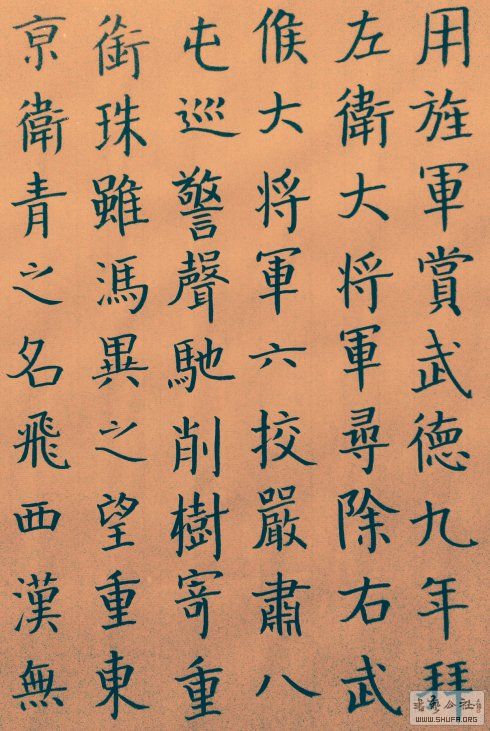 用旌軍賞武德九年拜
左衛大将軍尋除右武
候大将軍六挍嚴肅八
屯巡警聲馳削樹寄重
銜珠雖馮異之望重東
京衛青之名飛西漢無
WWW.SHUFA.ORG